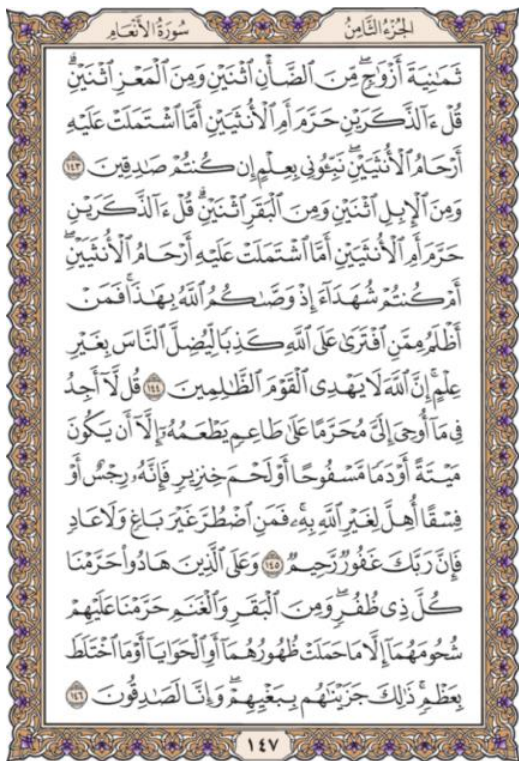 الجزء الثامن
سورة الأنعام
ثَمَٰنِيَةَ أَزْوَٰجٍۖ مِّنَ ٱلضَّأْنِ ٱثْنَيْنِ وَمِنَ ٱلْمَعْزِ ٱثْنَيْنِۗ
قُلْ ءَآلذَّكَرَيْنِ حَرَّمَ أَمِ ٱلْأُنثَيَيْنِ أَمَّا ٱشْتَمَلَتْ عَلَيْهِ
أَرْحَامُ ٱلْأُنثَيَيْنِۖ نَبِّـُٔونِي بِعِلْمٍ إِن كُنتُمْ صَٰدِقِينَ ١٤٣
وَمِنَ ٱلْإِبِلِ ٱثْنَيْنِ وَمِنَ ٱلْبَقَرِ ٱثْنَيْنِۗ قُلْ ءَآلذَّكَرَيْنِ
حَرَّمَ أَمِ ٱلْأُنثَيَيْنِ أَمَّا ٱشْتَمَلَتْ عَلَيْهِ أَرْحَامُ ٱلْأُنثَيَيْنِۖ
أَمْ كُنتُمْ شُهَدَآءَ إِذْ وَصَّىٰكُمُ ٱللَّهُ بِهَٰذَاۚ فَمَنْ
أَظْلَمُ مِمَّنِ ٱفْتَرَىٰ عَلَى ٱللَّهِ كَذِبًا لِّيُضِلَّ ٱلنَّاسَ بِغَيْرِ
عِلْمٍۚ إِنَّ ٱللَّهَ لَا يَهْدِى ٱلْقَوْمَ ٱلظَّٰلِمِينَ ١٤٤ قُل لَّآ أَجِدُ
فِى مَآ أُوحِىَ إِلَىَّ مُحَرَّمًا عَلَىٰ طَاعِمٍ يَطْعَمُهُۥٓ إِلَّآ أَن يَكُونَ
مَيْتَةً أَوْ دَمًا مَّسْفُوحًا أَوْ لَحْمَ خِنزِيرٍ فَإِنَّهُۥ رِجْسٌ أَوْ
فِسْقًا أُهِلَّ لِغَيْرِ ٱللَّهِ بِهِۦۚ فَمَنِ ٱضْطُرَّ غَيْرَ بَاغٍ وَلَا عَادٍ
فَإِنَّ رَبَّكَ غَفُورٌ رَّحِيمٌ ١٤٥ وَعَلَى ٱلَّذِينَ هَادُوا۟ حَرَّمْنَا
كُلَّ ذِى ظُفُرٍۖ وَمِنَ ٱلْبَقَرِ وَٱلْغَنَمِ حَرَّمْنَا عَلَيْهِمْ
شُحُومَهُمَآ إِلَّا مَا حَمَلَتْ ظُهُورُهُمَآ أَوِ ٱلْحَوَايَآ أَوْ مَا ٱخْتَلَطَ
بِعَظْمٍۚ ذَٰلِكَ جَزَيْنَٰهُم بِبَغْيِهِمْۖ وَإِنَّا لَصَٰدِقُونَ ١٤٦
١٤٧